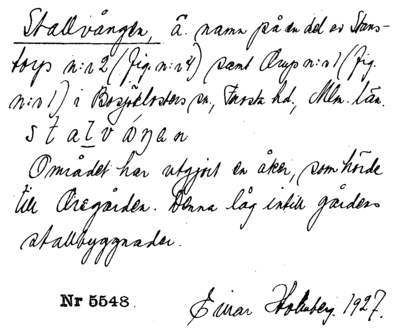 Stallvången, ä. namn på en del av Stans-
torps n:r 2 (fig. n:r 4) samt Orups n:r 1 (fig.
n:r 1) i Bosjöklosters sn, Frosta hd, Mlm. län.
stalvåŋan
Området har utgjort en åker, som hörde
till Oregården. Denna låg intill gårdens
stallbyggnader.
Nr 5548.
Einar Holmberg. 1927.